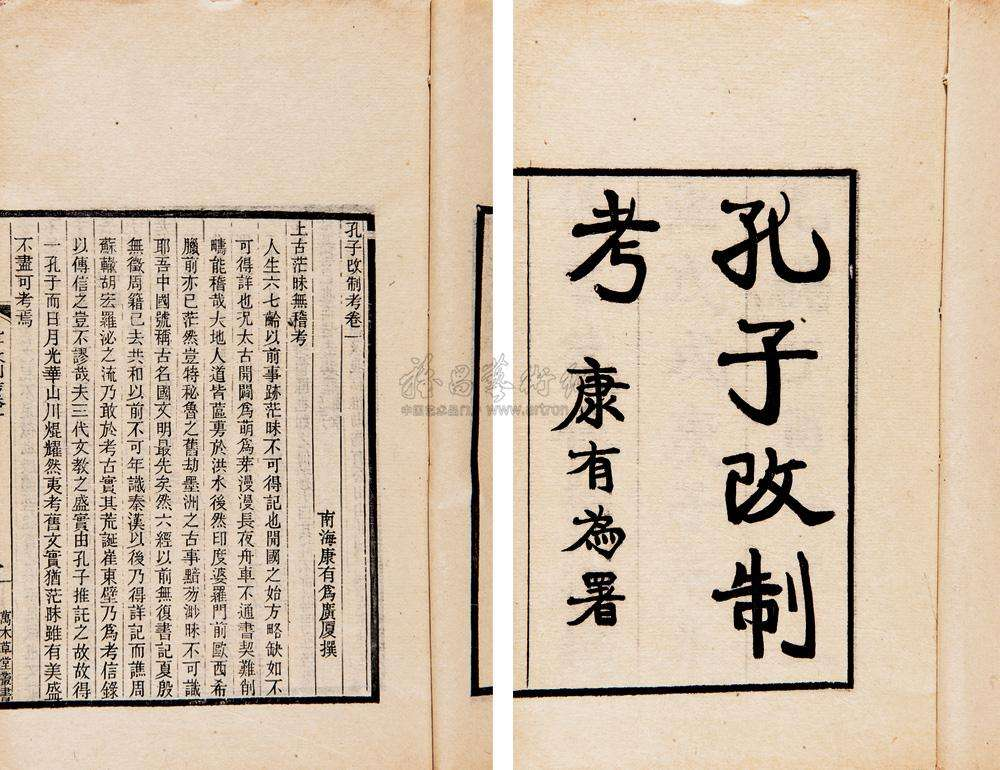 孔子改制
考 康有為署
孔子改制考卷一
南海康有爲廣厦撰
上古茫昧無稽考
人生六七齡以前事跡茫昧不可得記也開國之始方略缺如不
可得詳也况太古開闢爲萌爲芽漫漫長夜舟車不通書契難削
疇能稽哉大地人道皆蓲䓯於洪水後然印度婆羅門前歐西希
臘前亦已茫然豈特秘魯之舊劫墨洲之古事黯芴渺昧不可識
耶吾中國號稱古名國文明最先矣然六經以前無復書記夏殷
無徵周籍已去共和以前不可年識秦漢以後乃得詳記而譙周
蘇轍胡宏羅泌之流乃敢於考古實其荒誕崔東壁乃爲考信錄
以傳信之豈不謬哉夫三代文教之盛實由孔子推託之故故得
一孔子而日月光華山川焜耀然夷考舊文實猶茫昧雖有美盛
不盡可考焉
萬木草堂叢書
雅昌藝術
www.artron